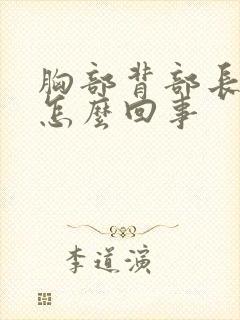 胸部背部長
怎麼回事
李道演